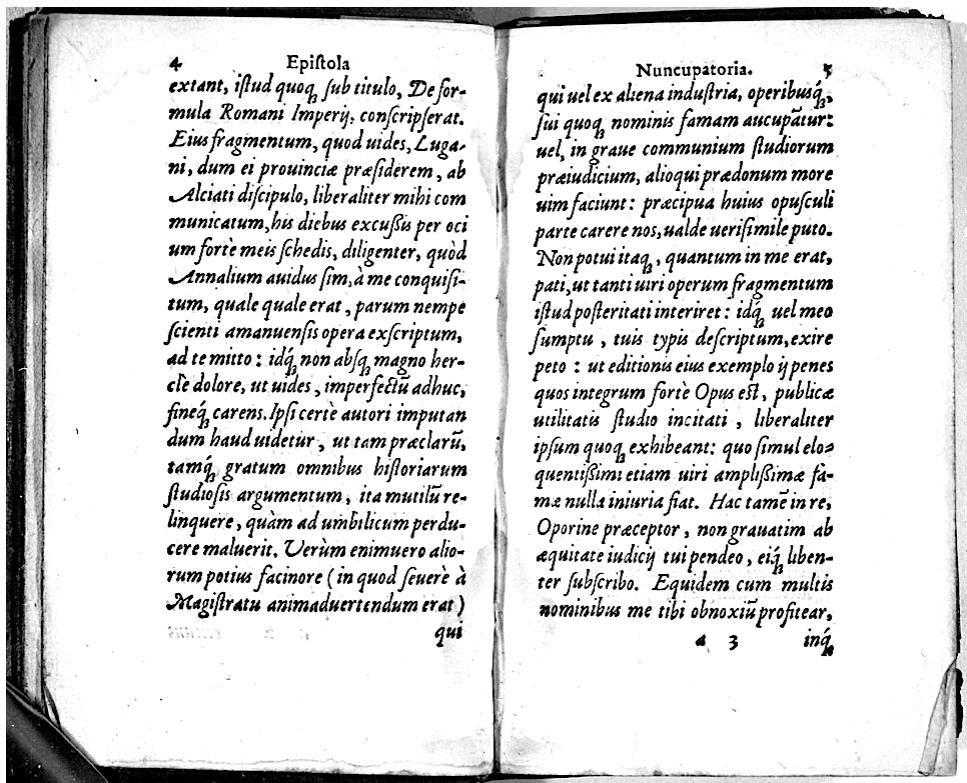 4 Epiſtola
extant, iſtud quoqꝫ ſub titulo, De for-
mula Romani Imperij, conſcripſerat.
Eius fragmentum, quod uides, Luga-
ni, dum ei prouinciæ præſiderem, ab
Alciati diſcipulo, liberaliter mihi com
municatum, his diebus excuſsis per oci
um fortè meis ſchedis, diligenter, quòd
Annalium auidus ſim, à me conquiſi-
tum, quale quale erat, parum nempe
ſcienti amanuenſis opera exſcriptum,
ad te mitto: idq́ꝫ non abſqꝫ magno her-
cle dolore, ut uides, imperfectũ adhuc,
fineq́ꝫ carens. Ipſi certè autori imputan
dum haud uidetur, ut tam præclarũ,
tamq́ꝫ gratum omnibus hiſtoriarum
ſtudioſis argumentum, ita mutilũ re-
linquere, quàm ad umbilicum perdu-
cere maluerit. Verùm enimuero alio-
rum potius facinore (in quod ſeuerè à
Magiſtratu animaduertendum erat)
qui
Nuncupatoria. 5
qui uel ex aliena induſtria, operibusq́ꝫ,
ſui quoqꝫ nominis famam aucupãtur:
uel, in graue communium ſtudiorum
præiudicium, alioqui prædonum more
uim faciunt: præcipua huius opuſculi
parte carere nos, ualde ueriſimile puto.
Non potui itaqꝫ, quantum in me erat,
pati, ut tanti uiri operum fragmentum
iſtud poſteritati interiret: idq́ꝫ uel meo
ſumptu, tuis typis deſcriptum, exire
peto: ut editionis eius exemplo ij penes
quos integrum fortè Opus eſt, publicæ
utilitatis ſtudio incitati, liberaliter
ipſum quoqꝫ exhibeant: quo ſimul elo-
quentiſsimi etiam uiri ampliſsimæ fa-
mæ nulla iniuria fiat. Hac tamẽ in re,
Oporine præceptor, non grauatim ab
æquitate iudicij tui pendeo, eiq́ꝫ liben-
ter ſubſcribo. Equidem cum multis
nominibus me tibi obnoxiũ profitear,
a 3 inq́ꝫ